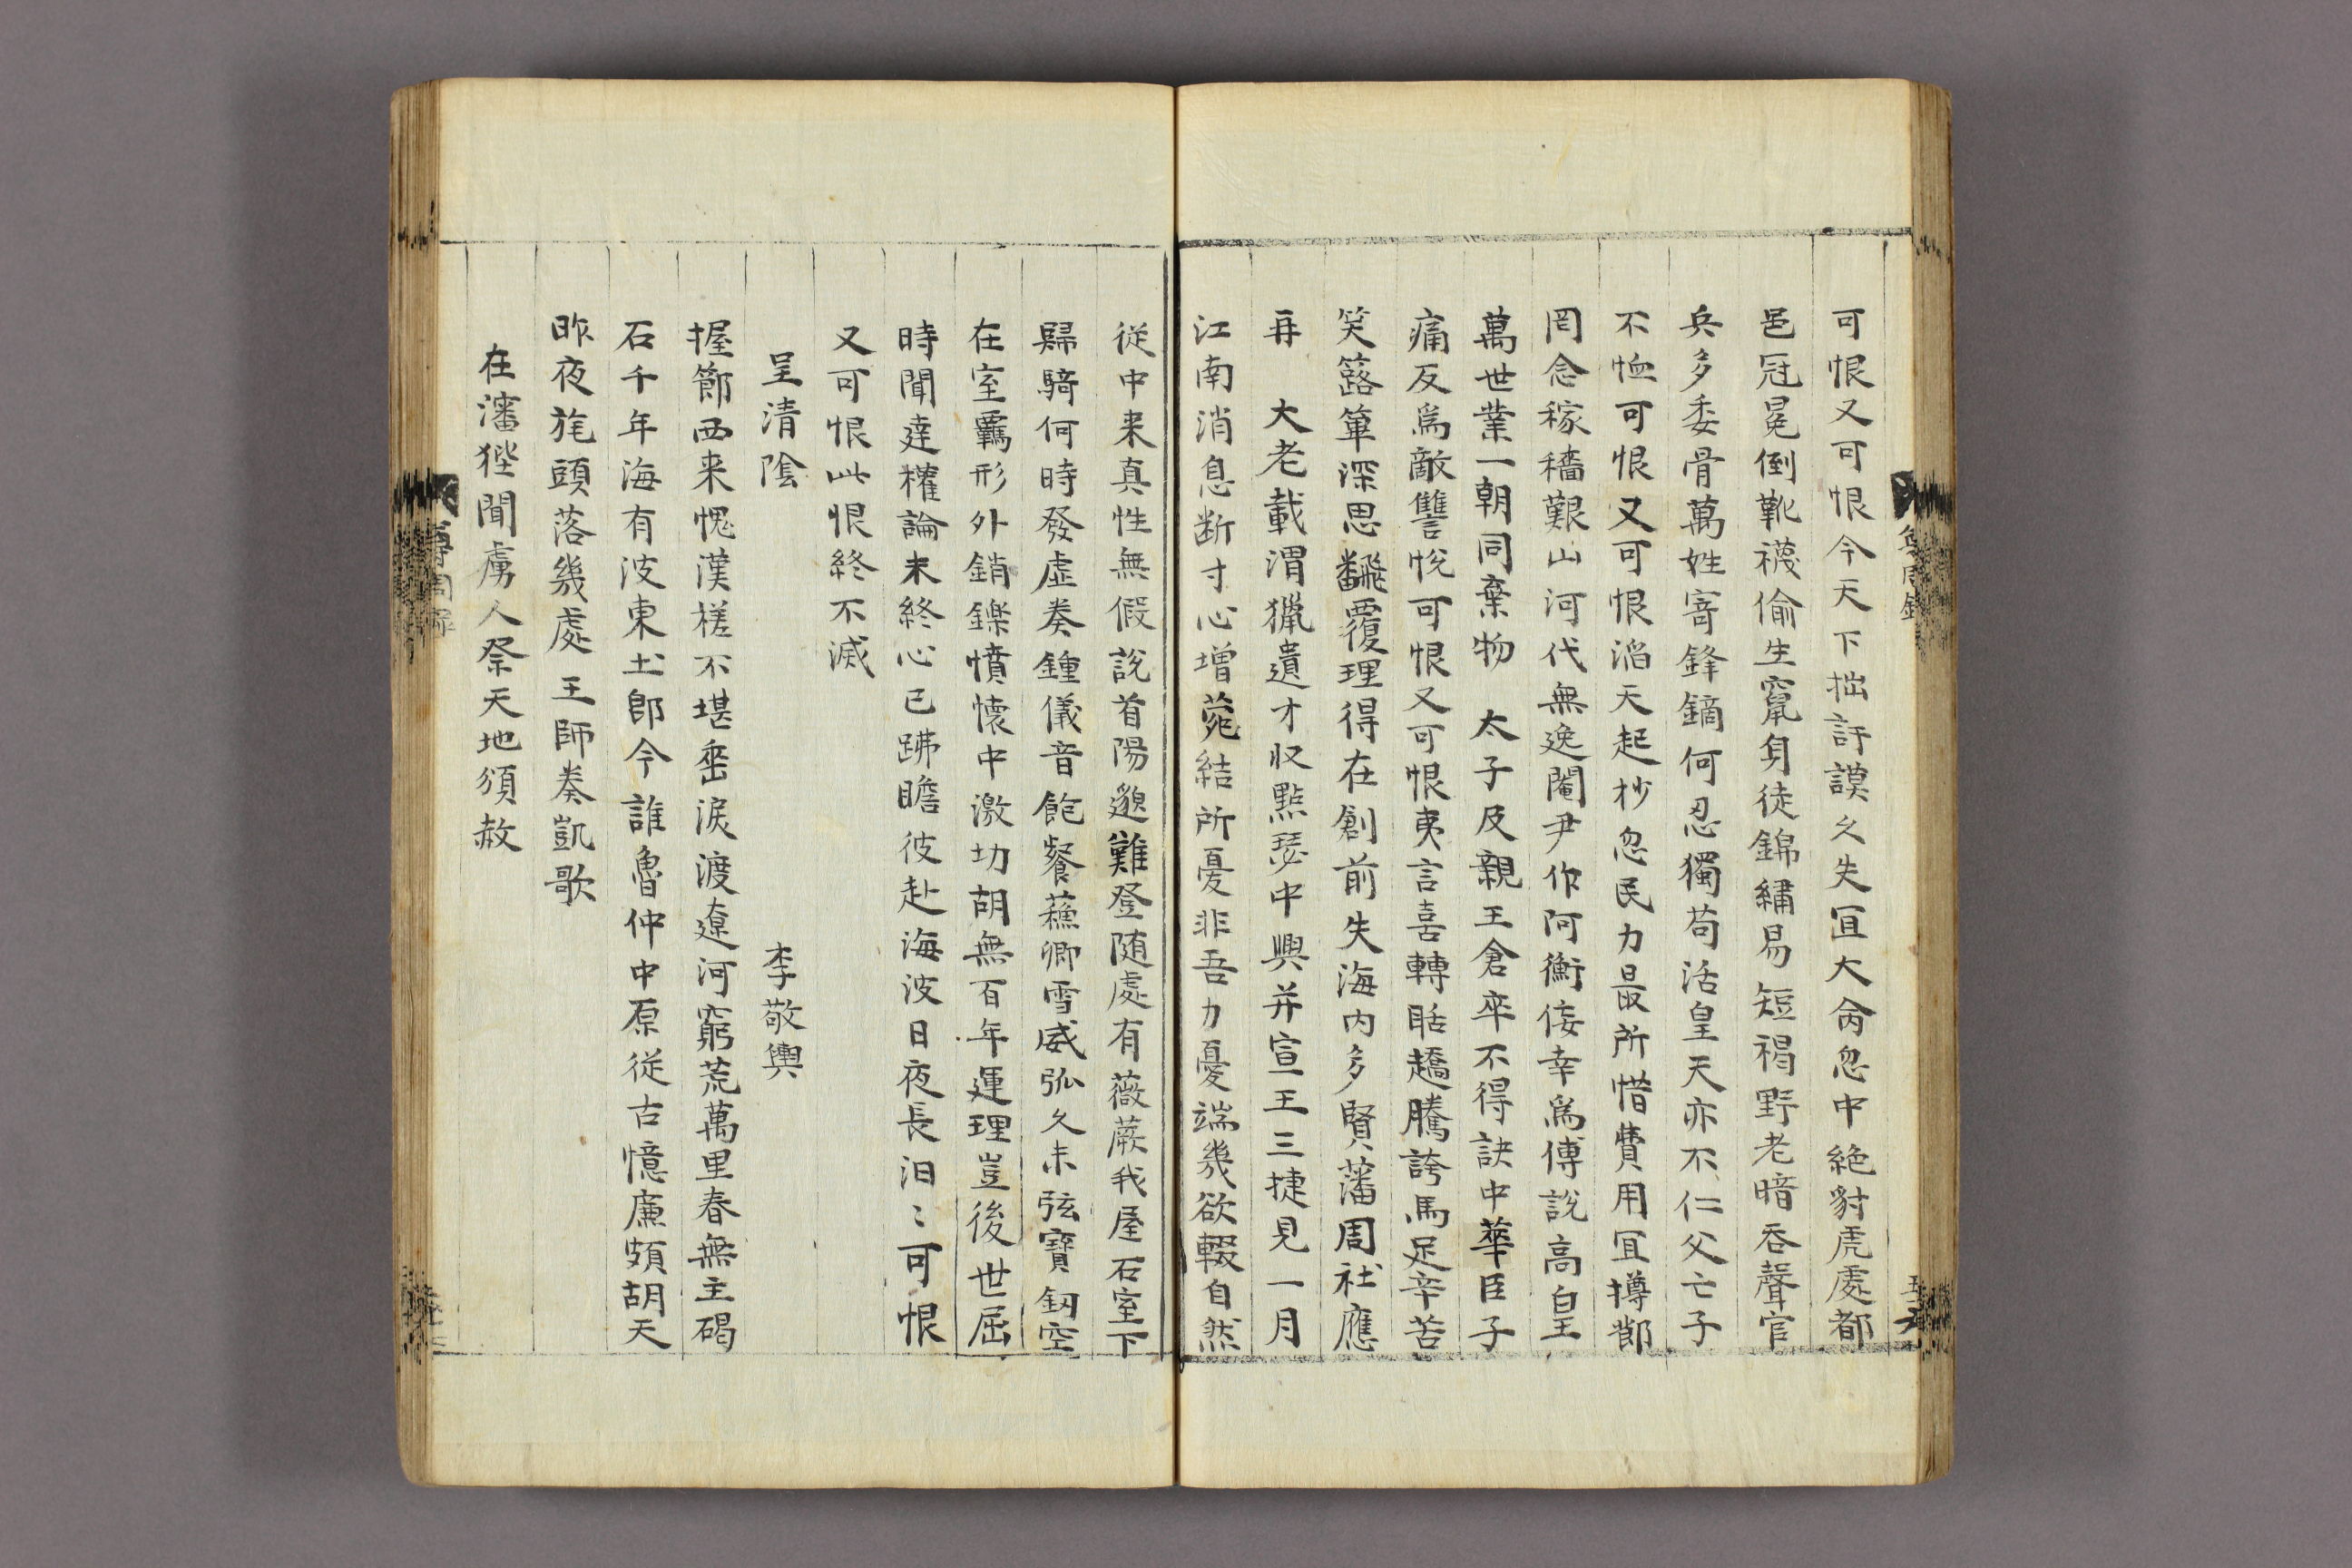 可恨又可恨今天下拙訏謨久失冝大侖忽中絶豺虎處都
邑冠冕倒靴襪偷生竄身徒錦繡易短褐野老暗吞聲官
兵多委骨萬姓寄鋒鏑何忍獨苟活皇天亦不仁父亡子
不恤可恨又可恨滔天起杪忽民力最所惜費用冝撙節
罔念稼穡艱山河代無逸閹尹作阿衡侫幸爲傅說高皇
萬世業一朝同棄物 太子及親王倉卒不得訣中華臣子
痛反爲敵讐悅可恨又可恨夷言喜轉聒趫騰誇馬足辛苦
笑簬簞深思飜覆理得在創前失海内多賢藩周社應
再 大老載渭獵遺才収點瑟中興并宣王三捷見一月
江南消息断寸心增菀結所憂非吾力憂端幾欲輟自然
從中来真性無假說首陽邈難登随處有薇蕨我屋石室下
歸騎何時發虛奏鍾儀音飽餐蘓卿雪威弧久未弦寶釰空
在室羈形外銷鑠憤懐中激切胡無百年運理豈後世屈
時聞達權論未終心已咈瞻彼赴海波日夜長汨〻可恨
又可恨此恨終不滅
呈清隂 李敬輿
握節西来愧漢槎不堪垂淚渡遼河窮荒萬里春無主碣
石千年海有波東土卽今誰魯仲中原從古憶廉頗胡天
昨夜旄頭落幾處 王師奏凱歌
在瀋狴聞虜人祭天地頒赦
尊周録